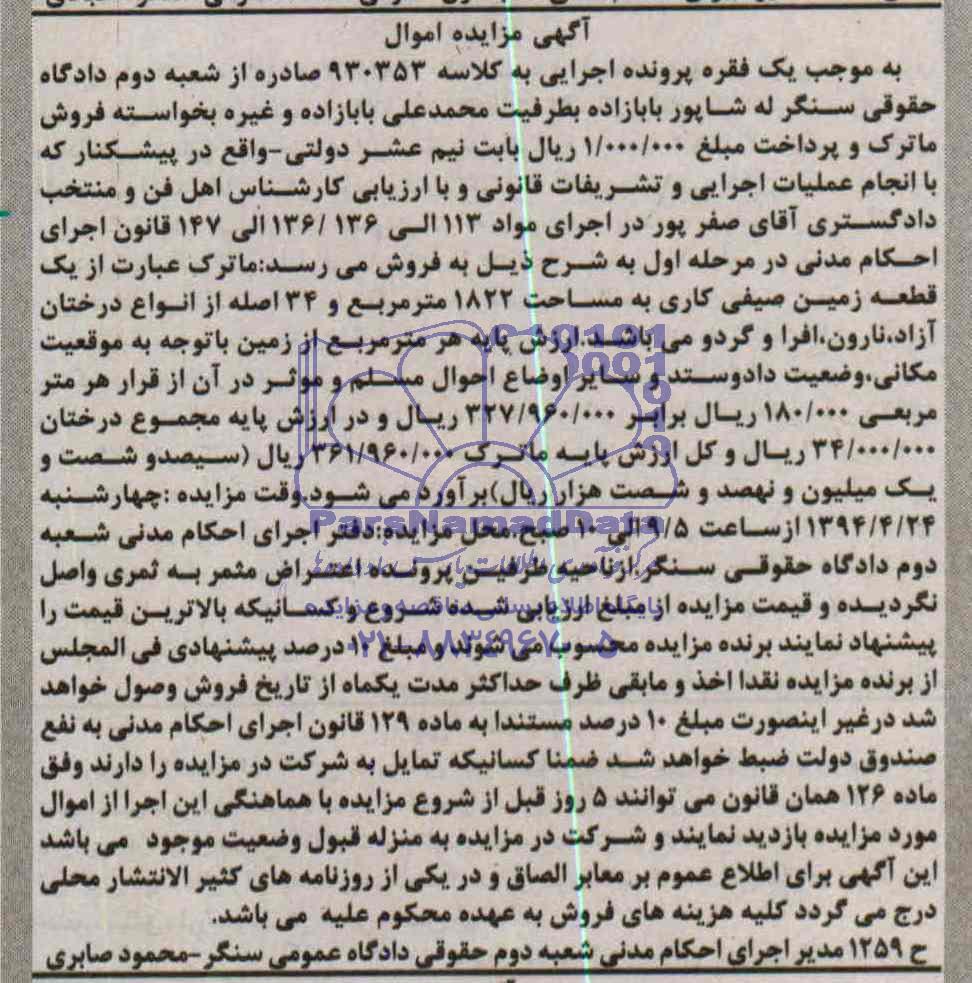 آگهی مزایده اموال
به موجب یک فقره پرونده اجرایی به کلاسه ۹۳۰۳۵۳ صادره از شعبه دوم دادگاه
حقوقی سنگر له شاپور بابازاده بطرفیت محمدعلی بابازاده و غیره بخواسته فروش
ماترک و پرداخت مبلغ ۱/۰۰۰/۰۰۰ ریال بابت نیم عشر دولتی-واقع در پیشکنار که
با انجام عملیات اجرایی و تشریفات قانونی و با ارزیابی کارشناس اهل فن و منتخب
دادگستری آقای صفر پور در اجرای مواد ۱۱۳ الی ۱۳۶ /۱۳۶ الی ۱۴۷ قانون اجرای
احکام مدنی در مرحله اول به شرح ذیل به فروش می رسد:ماترک عبارت از یک
قطعه زمین صیفی کاری به مساحت ۱۸۲۲ مترمربع و ۳۴ اصله از انواع درختان
آزاد،نارون،افرا و گردو می باشد.ارزش پایه هر مترمربع از زمین باتوجه به موقعیت
مکانی،وضعیت دادوستد و سایر اوضاع احوال مسلم و موثر در آن از قرار هر متر
مربعی ۱۸۰/۰۰۰ ریال برابر ۳۲۷/۹۶۰/۰۰۰ ریال و در ارزش پایه مجموع درختان
۳۴/۰۰۰/۰۰۰ ریال و کل ارزش پایه ماترک ۳۶۱/۹۶۰/۰۰۰ ریال (سیصدو شصت و
یک میلیون و نهصد و شصت هزار ریال)برآورد می شود.وقت مزایده :چهارشنبه
۱۳۹۴/۴/۲۴ ازساعت ۹/۵ الی ۱۰ صبح.محل مزایده:دفتر اجرای احکام مدنی شعبه
دوم دادگاه حقوقی سنگر.ازناحیه طرفین پرونده اعتراض مثمر به ثمری واصل
نگردیده و قیمت مزایده از مبلغ ارزیابی شده شروع و کسانیکه بالاترین قیمت را
پیشنهاد نمایند برنده مزایده محسوب می شوند و مبلغ ۱۰ درصد پیشنهادی فی المجلس
از برنده مزایده نقدا اخذ و مابقی ظرف حداکثر مدت یکماه از تاریخ فروش وصول خواهد
شد درغیر اینصورت مبلغ ۱۰ درصد مستندا به ماده ۱۲۹ قانون اجرای احکام مدنی به نفع
صندوق دولت ضبط خواهد شد ضمنا کسانیکه تمایل به شرکت در مزایده را دارند وفق
ماده ۱۲۶ همان قانون می توانند ۵ روز قبل از شروع مزایده با هماهنگی این اجرا از اموال
مورد مزایده بازدید نمایند و شرکت در مزایده به منزله قبول وضعیت موجود می باشد
این آگهی برای اطلاع عموم بر معابر الصاق و در یکی از روزنامه های کثیر الانتشار محلی
درج می گردد کلیه هزینه های فروش به عهده محکوم علیه می باشد.
ح ۱۲۵۹ مدیر اجرای احکام مدنی شعبه دوم حقوقی دادگاه عمومی سنگر-محمود صابری
ParsNamadData
۰۲۱-۸۸۳۴۹۶۷۰-۵